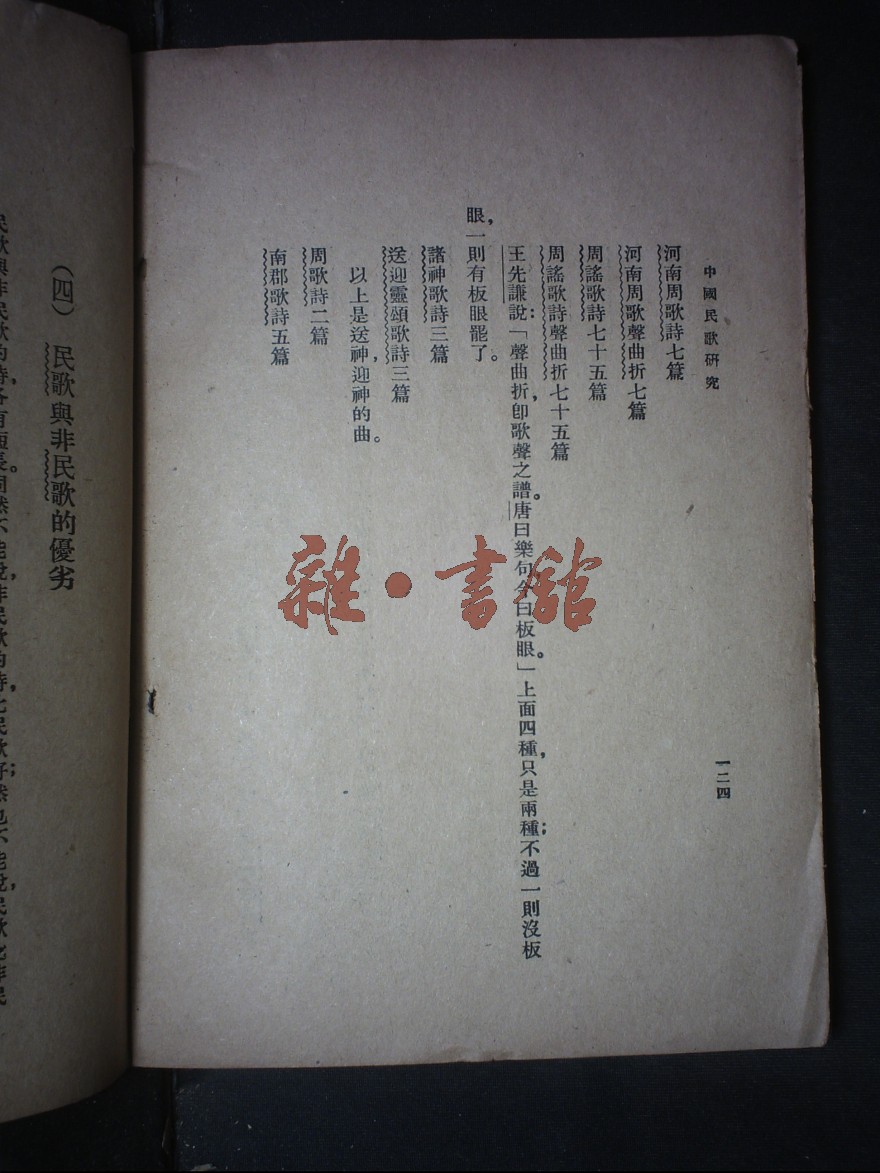 中國民歌研究
一二四
河南周歌詩七篇
河南周歌聲曲折七篇
周謠歌詩七十五篇
周謠歌詩聲曲折七十五篇
王先謙說：「聲曲折，卽歌聲之譜。唐曰樂句，今曰板眼。」上面四種，只是兩種；不過一則沒板
眼，一則有板眼罷了。
諸神歌詩三篇
送迎靈頌歌詩三篇
以上是送神，迎神的曲。
周歌詩二篇
南郡歌詩五篇
(四)　民歌與非民歌的優劣
民歌與非民歌的詩，各有短長。固然不能說，非民歌的詩，比民歌好；然也不能說，民歌比非民
雜·書館